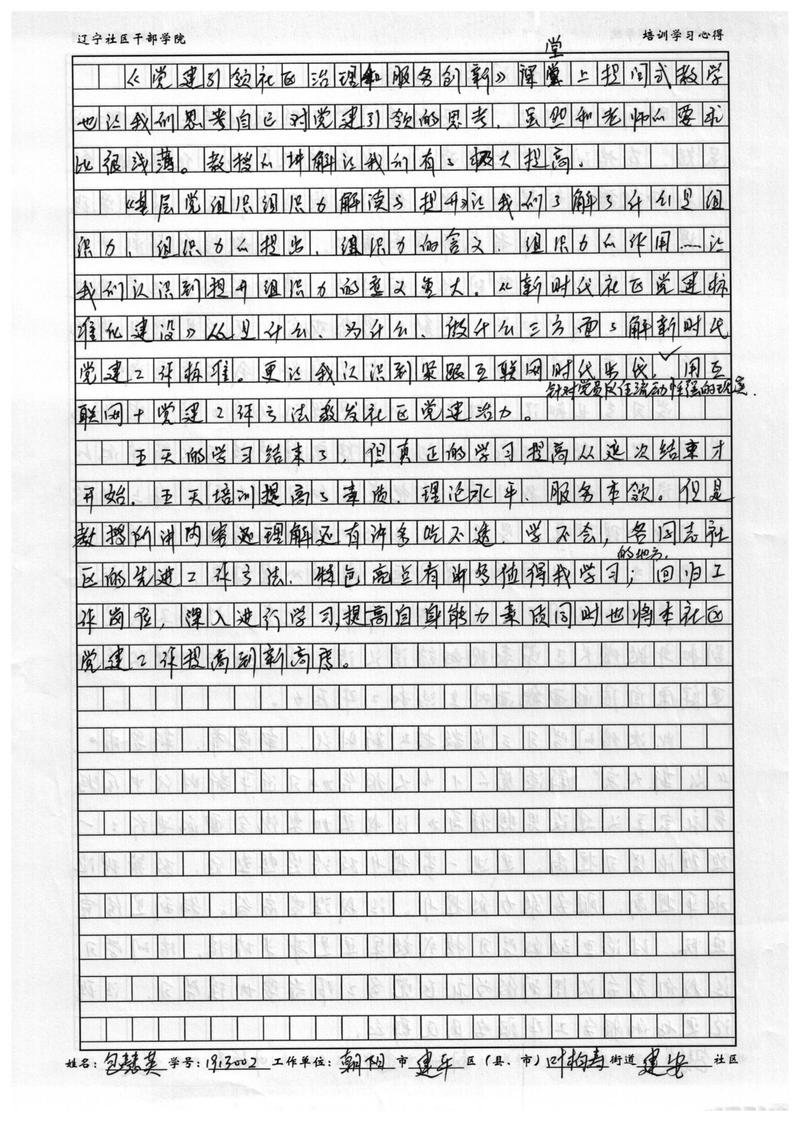 辽宁社区干部学院 培训学习心得
堂
《党建引领社区治理和服务创新》课堂上提问式教学
也让我们思考自己对党建引领的思考，虽然和老师的要求
比很浅薄。教授的讲解让我们有了极大提高。
《基层党组织组织力解读与提升》让我们了解了什么是组
织力，组织力的提出，组织力的含义，组织力的作用……让
我们认识到提升组织力的意义重大。《新时代社区党建标
准化建设》从是什么、为什么、做什么三方面了解新时代
党建工作标准。更让我认识到紧跟互联网时代当代，用互
针对党员居住流动性强的现实，
联网+党建工作方法激发社区党建活力。
五天的学习结束了，但真正的学习提高从这次结束才
开始，五天培训提高了素质，理论水平，服务本领。但是
教授所讲内容处理解还有许多吃不透，学不会，各同志社
的地方，
区的先进工作方法，特色亮点有许多值得我学习；回归工
作岗位，深入进行学习，提高自身能力素质同时也将本社区
党建工作提高到新高度。
姓名：包慧英 学号：1913002 工作单位：朝阳市 建平 区（县、市）叶柏寿街道 建安 社区